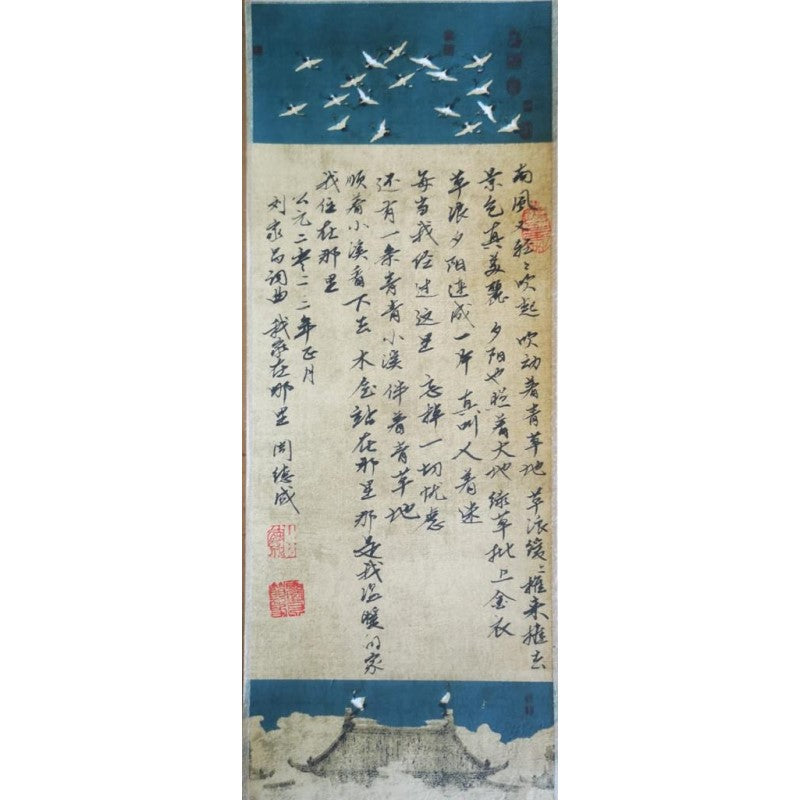 南風又轻々吹起 吹动着青草地 草浪緩々摧来摧去
景色真美麗 夕阳也照着大地 绿草批上金衣
草浪夕阳连成一片 真叫人着迷
每当我经过这里 忘掉一切忧愁
还有一条青青小溪伴着青草地
顺着小溪看下去 木屋站在那里那是我温暖的家
我住在那里
公元二零二二年正月
刘家昌词曲 我家在那里 周德成